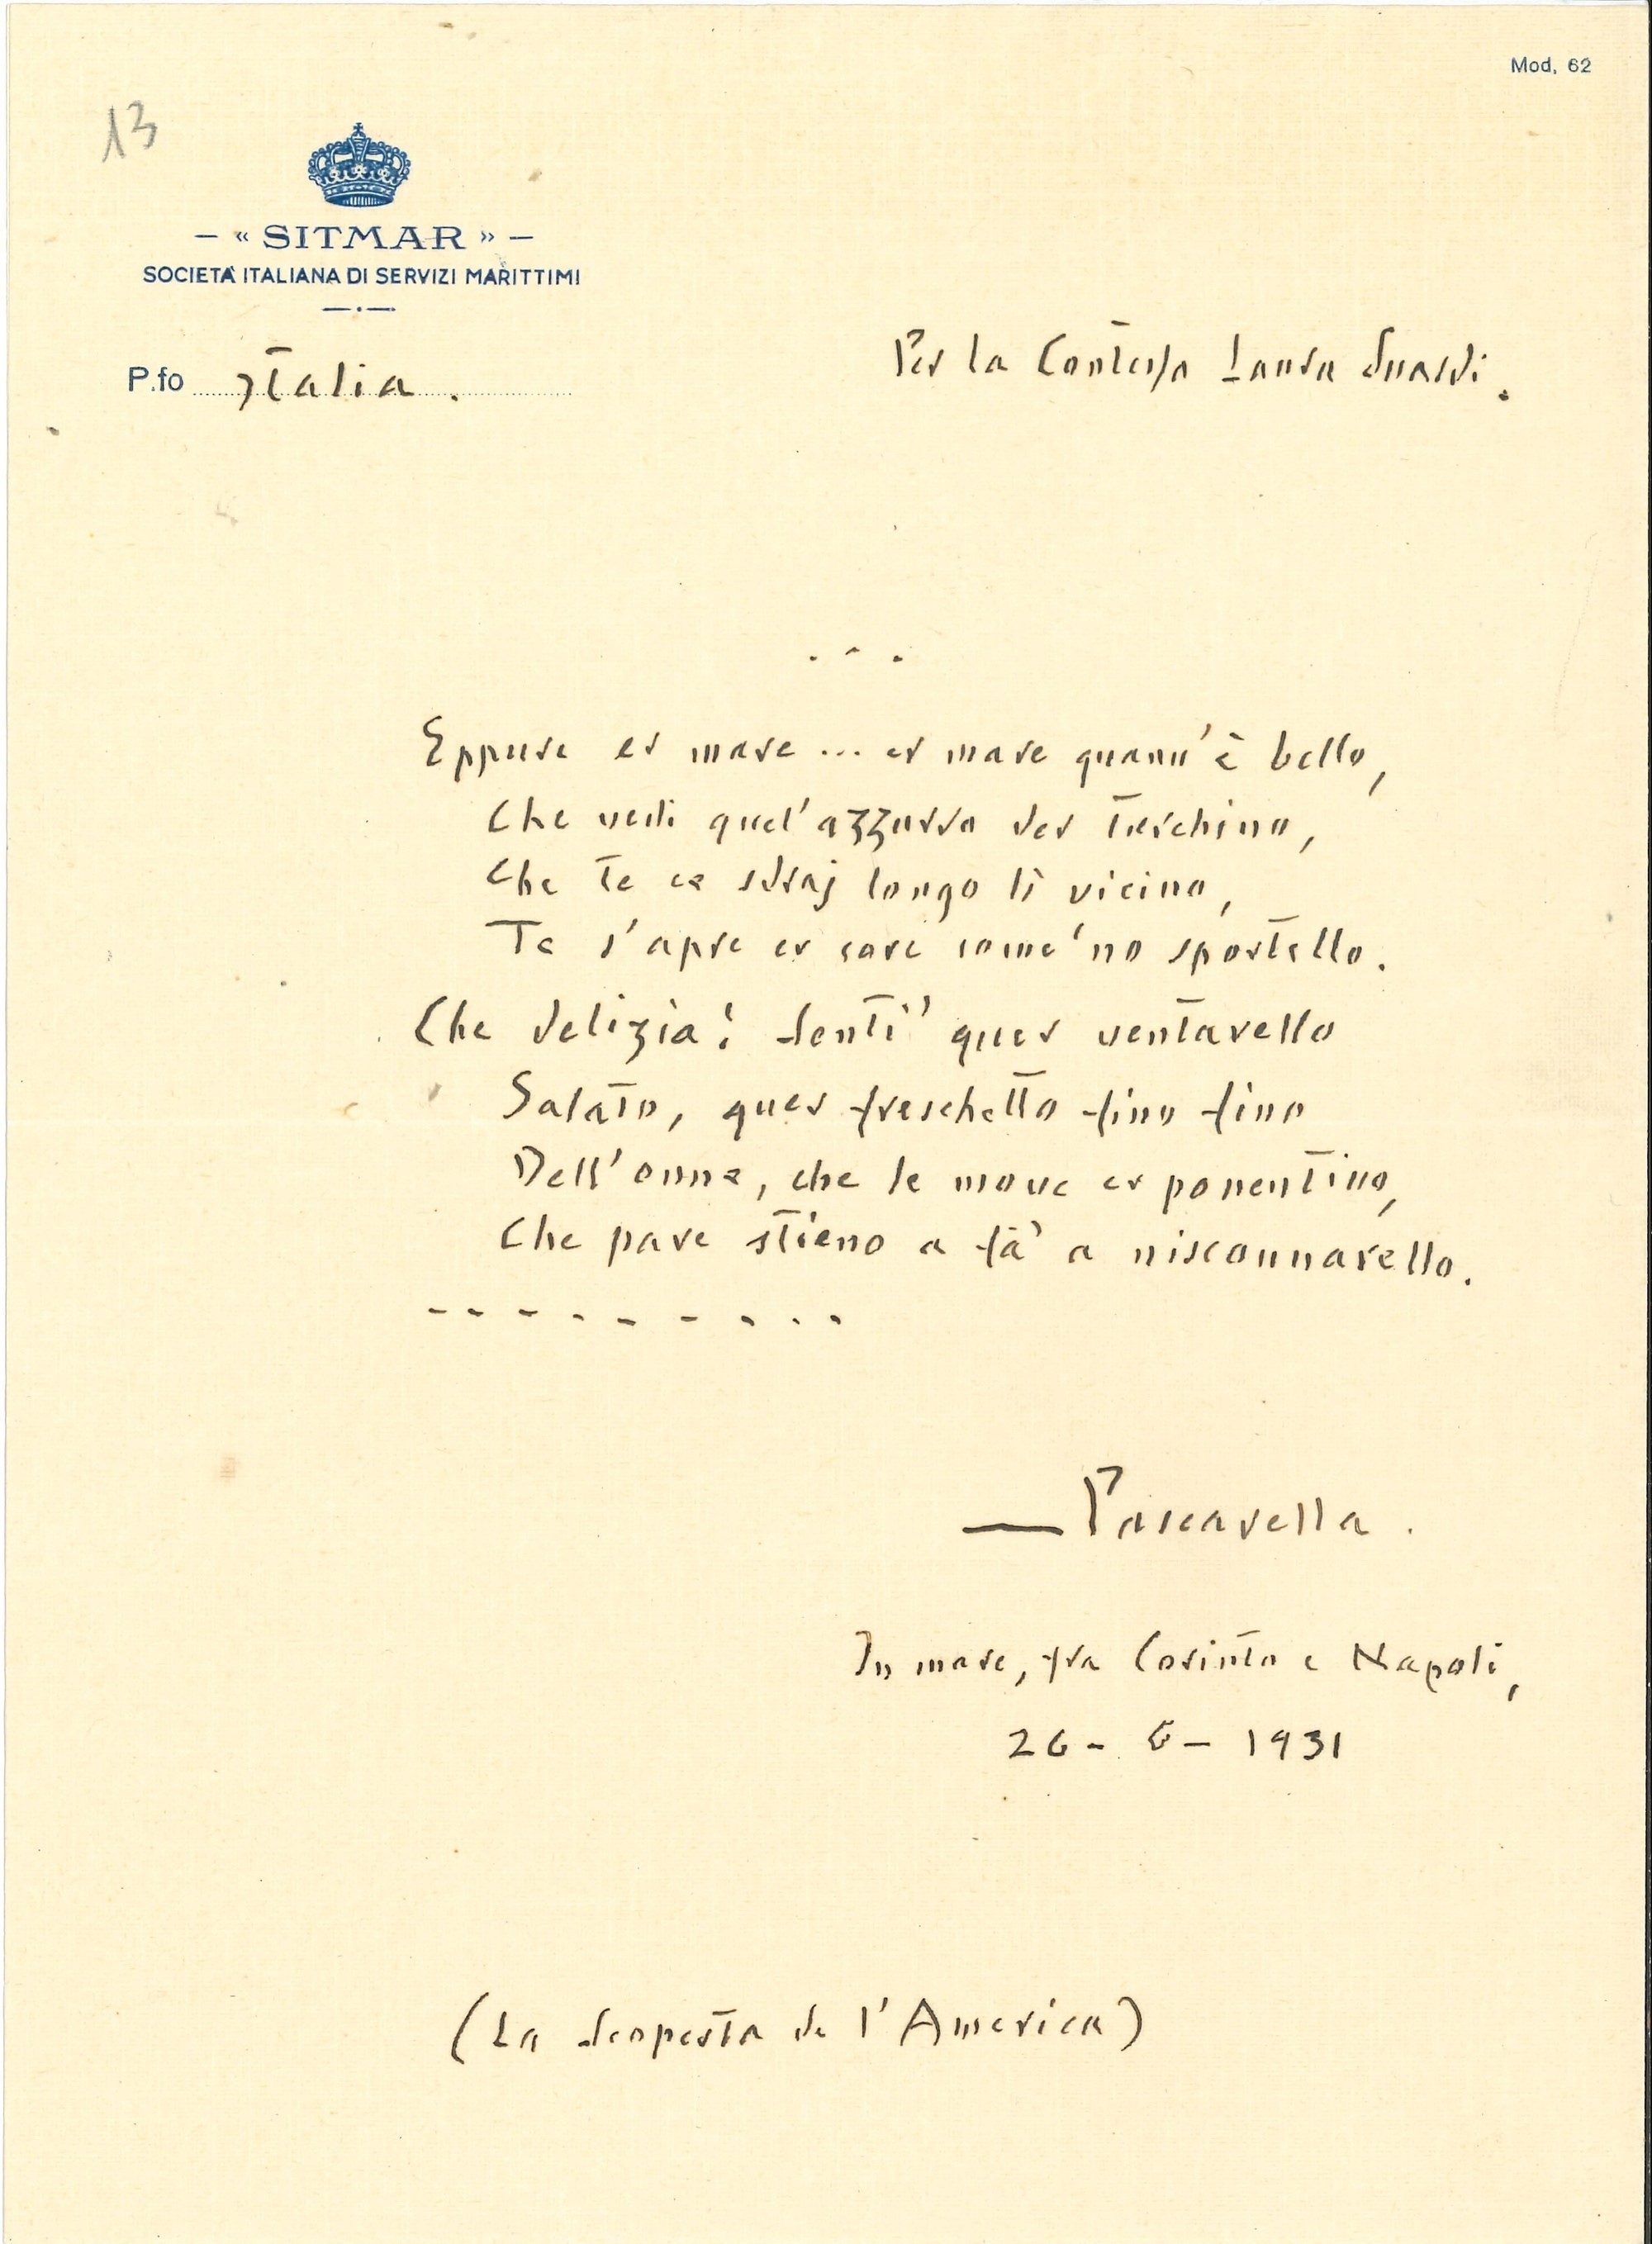 Mod. 62
13
— « SITMAR » —
SOCIETÀ ITALIANA DI SERVIZI MARITTIMI
P.fo Italia.
Per la Contessa Laura Suardi.
. . .
Eppure er mare ... er mare quann'è bello,
Che vedi quel'azzurro der turchino,
Che te ce sdraj longo lì vicino,
Te s'apre er core come 'no sportello.
Che delizia! Sentì quer ventarello
Salato, quer freschetto fino fino
Dell'onne, che le move er ponentino,
Che pare stieno a fà a nisconnarello.
- - - - - - - - -
— Pascarella.
In mare, fra Corinto e Napoli,
26 - 6 - 1931
(La Scoperta de l'America)